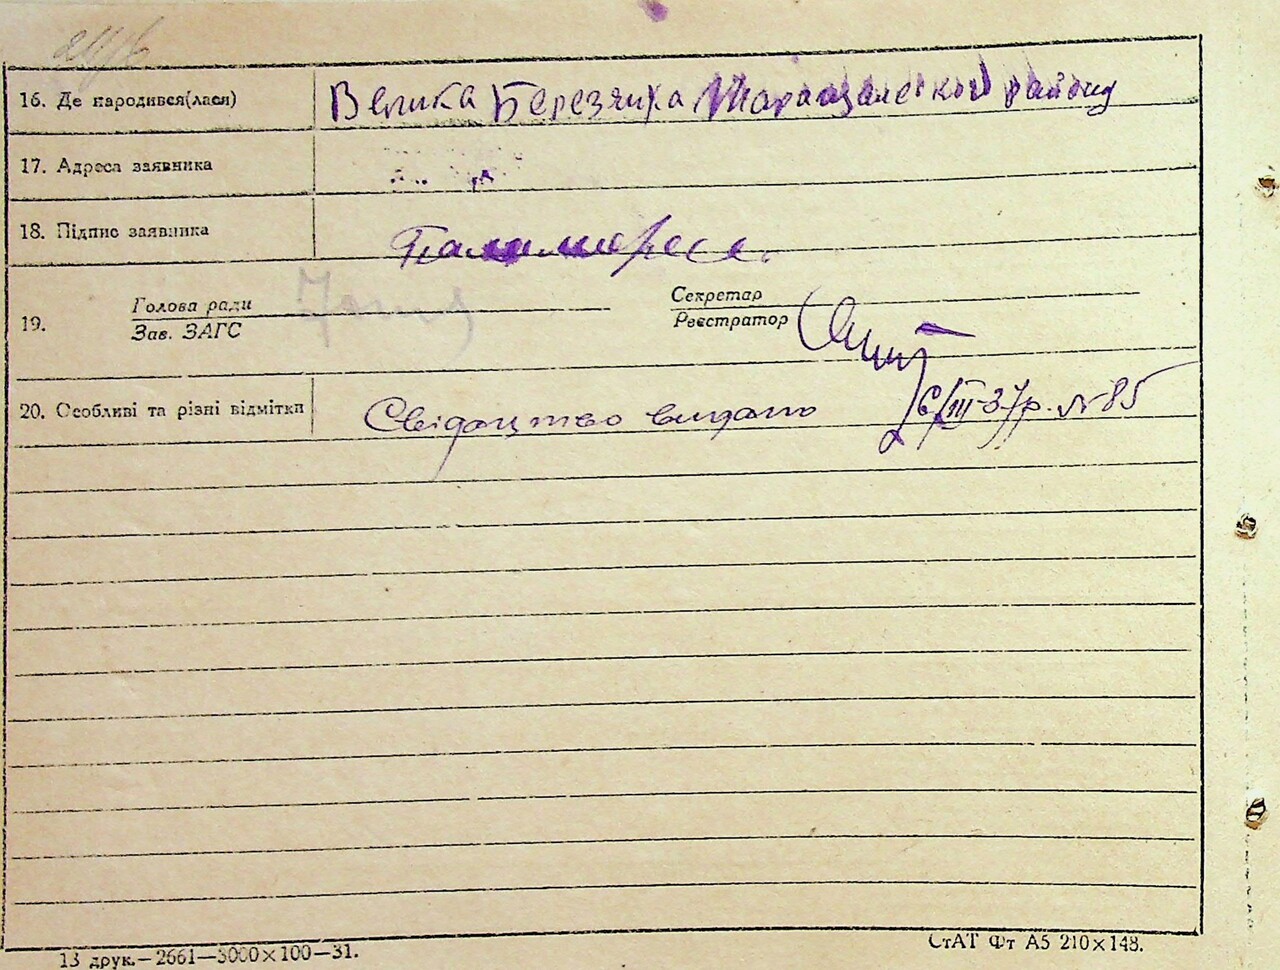 16. Де народився(лася) Велика Березянка Таращанського району
17. Адреса заявника
18. Підпис заявника
19. Голова ради
Зав. ЗАГС
Секретар
Реєстратор
20. Особливі та різні відмітки Свідоцтво видано 6/III-37р. № 85
13 друк.—2661—5000×100—31.
СтАТ Фт А5 210×148.